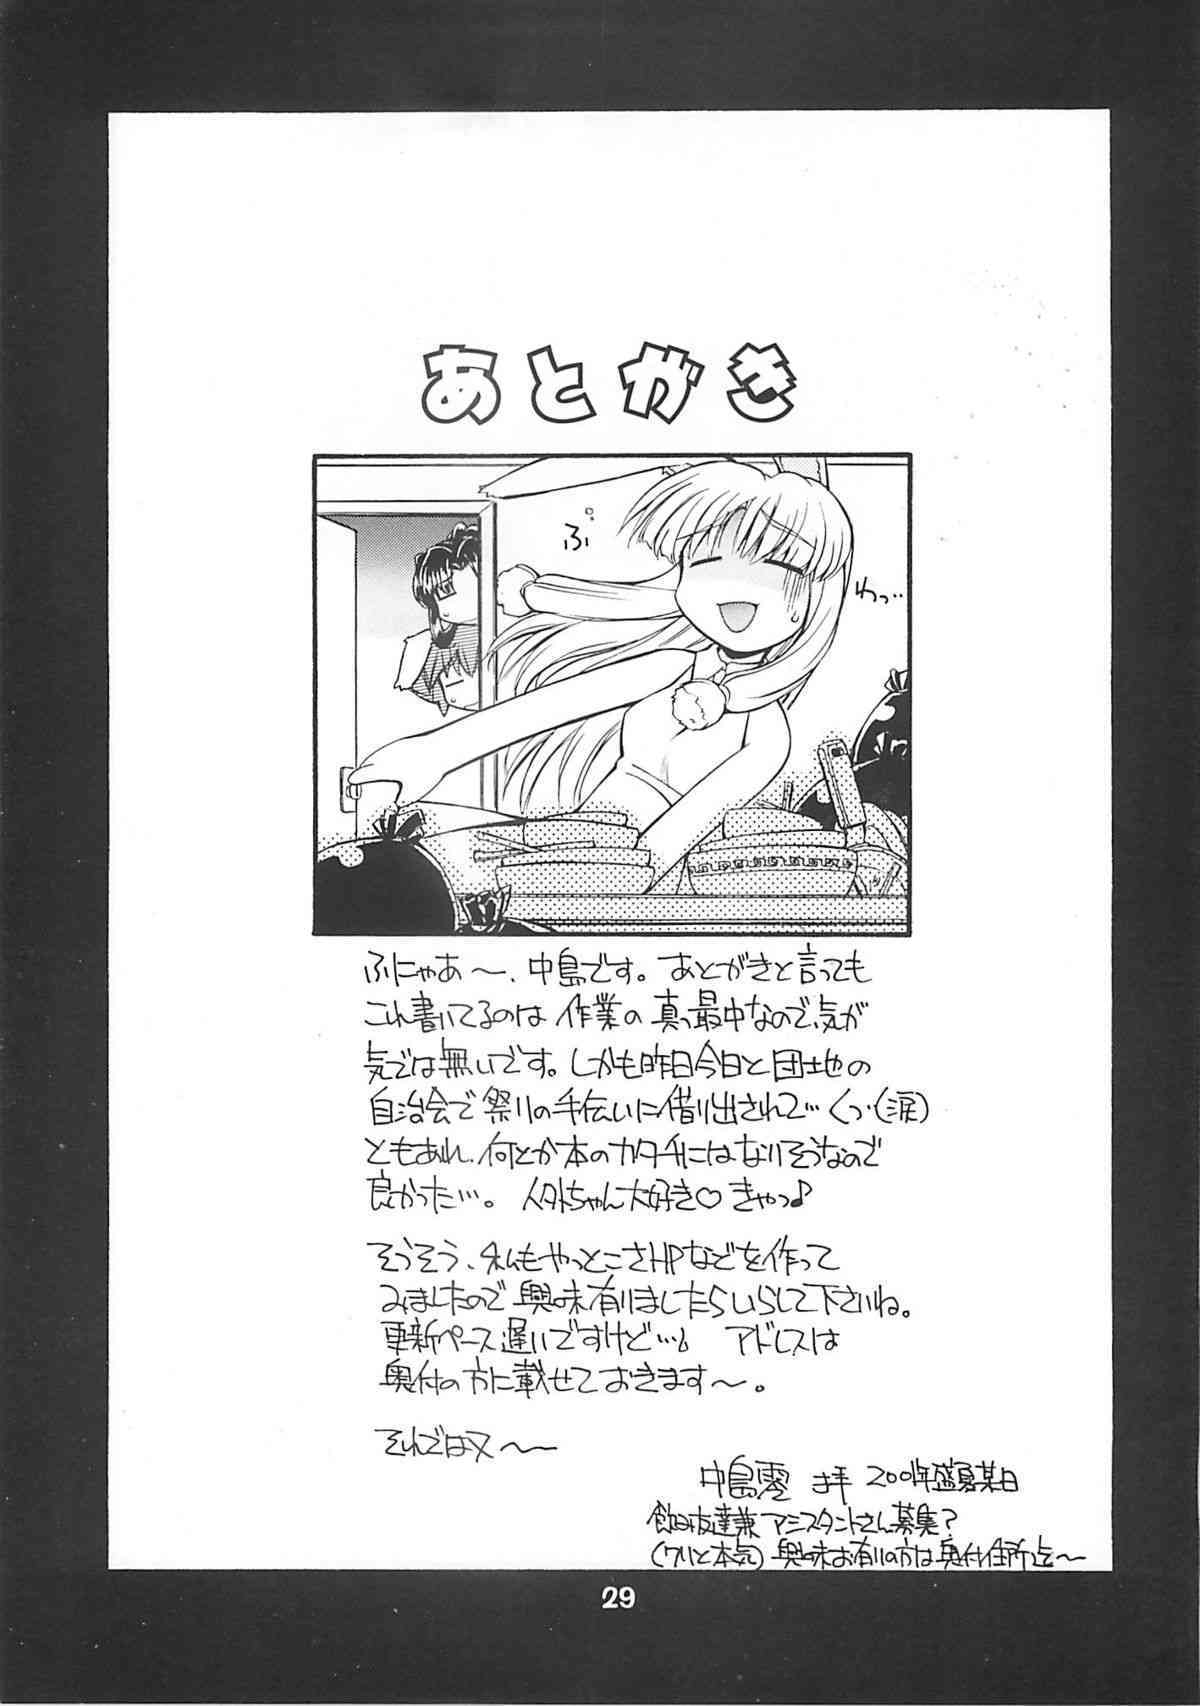 あとがき
ぷ
わっ‥
ふにゃあ〜、中島です。あとがきと言っても
これ書いてるのは作業の真っ最中なので、気が
気では無いです。しかも昨日今日と団地の
自治会で祭りの手伝いに借り出されて‥くっ・(涙)
ともあれ、何とか本のカタチにはなりそうなので
良かった…。人外ちゃん大好き♡きゃっ♪
そうそう、私もやっとこさHPなどを作って
みましたので興味有りましたらいらして下さいね。
更新ペース遅いですけど…。アドレスは
奥付の方に載せておきます〜。
それではヌ〜
中島零 拝 2001年盛夏某日
飲み友達兼アシスタントさん募集?
(ワリと本気)興味お有りの方は奥付住所迄〜
29